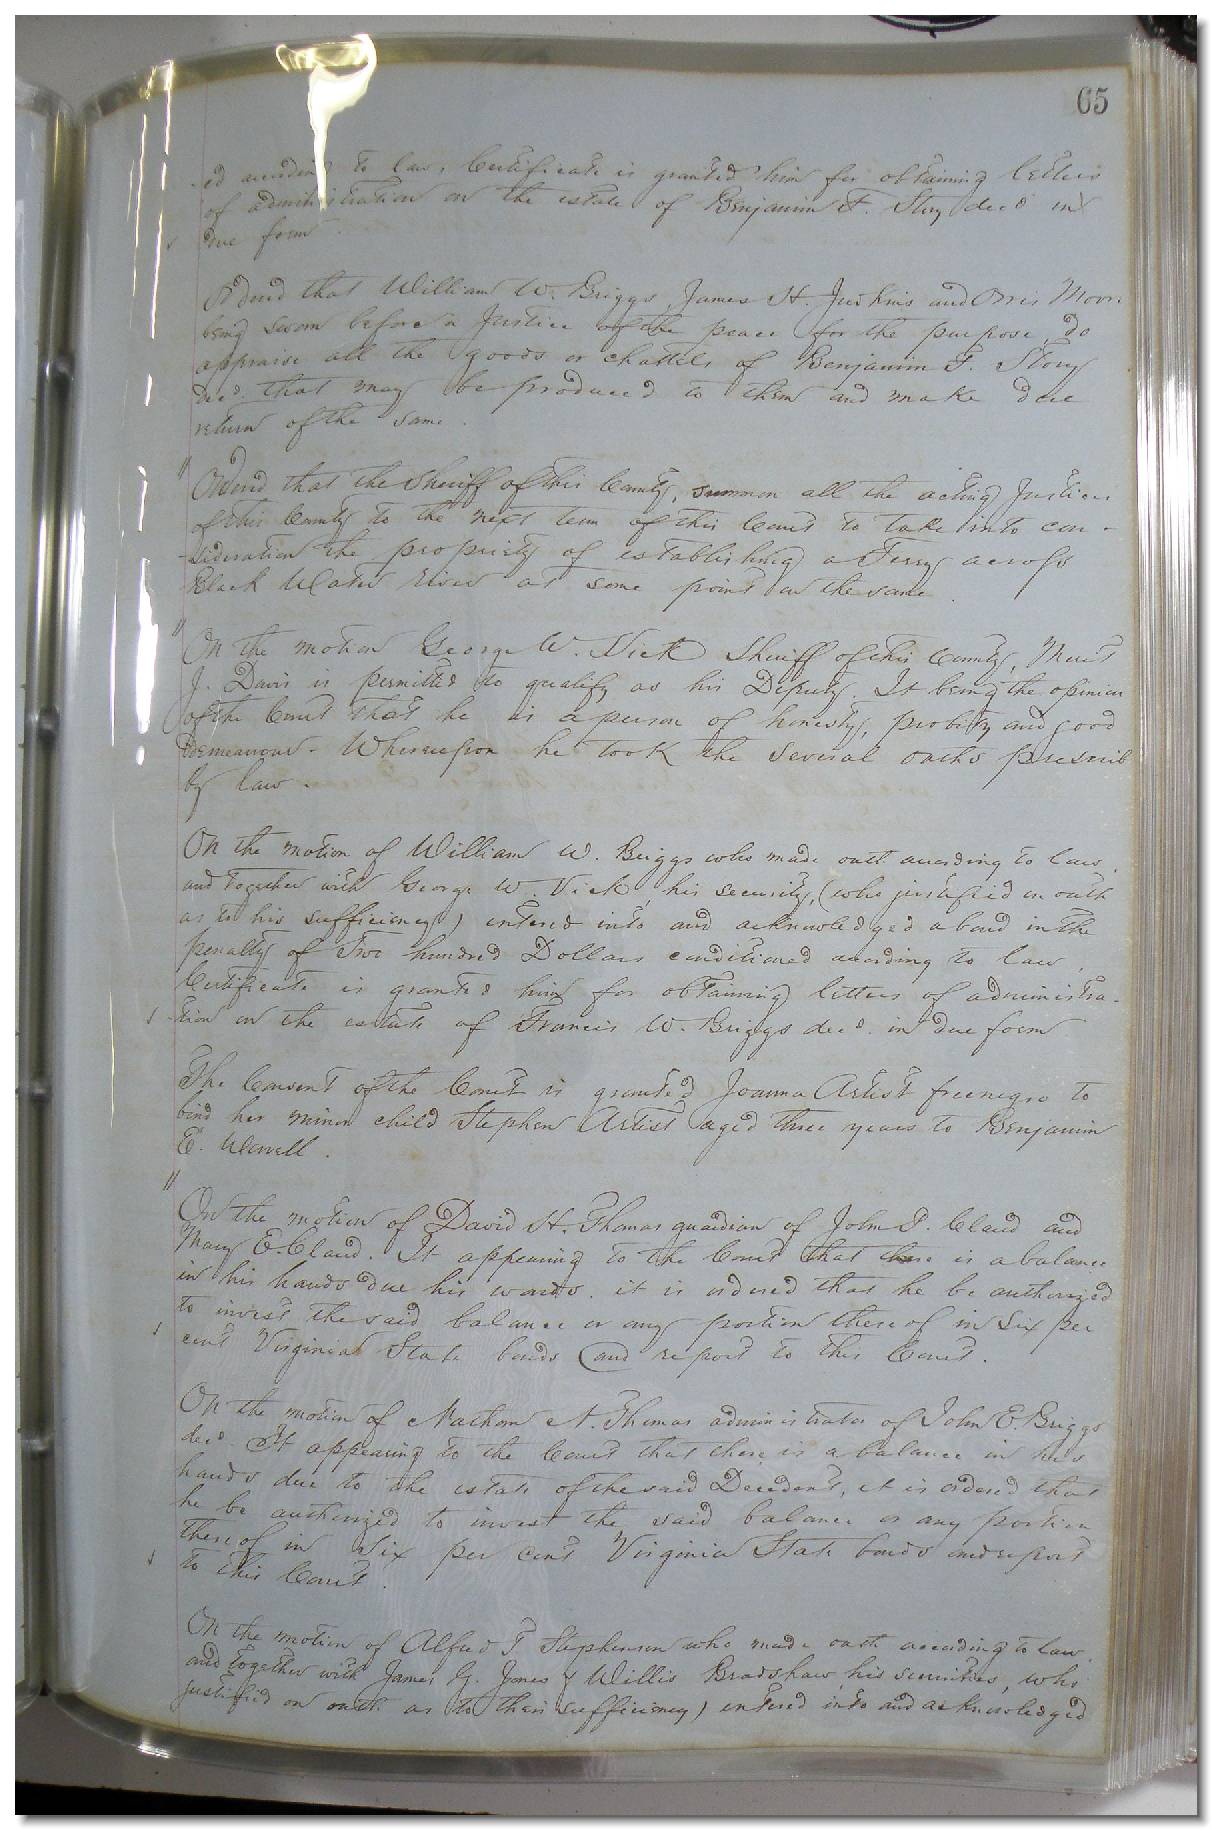 65
ed according to law, Certificate is granted him for obtaining letters
of administration on the estate of Benjamin F. Story decd in
due form.
Ordered that William W. Briggs, James H. Judkins and Orris Moore
being sworn before a Justice of the peace for the purpose, do
appraise all the goods or chattels of Benjamin F. Story
decd. that may be produced to them and make due
return of the same.
Ordered that the Sheriff of this County, summon all the acting Justices
of this County to the next term of this Court to take into con-
-sideration the propriety of establishing a Ferry across
Black Water River at some point on the same.
On the motion George W. Vick Sheriff of this County,
J. Davis is permitted to qualify as his Deputy. It being the opinion
of the Court that he is a person of honesty, probity and good
demeanour. Whereupon he took the several oaths prescrib
by law.
On the motion of William W. Briggs who made oath according to law,
and together with George W. Vick, his security, (who justified on oath
as to his sufficiency) entered into and acknowledged a bond in the
penalty of Two hundred Dollars conditioned according to law,
Certificate is granted him for obtaining letters of administra-
-tion on the estate of Francis W. Briggs decd. in due form
The Consent of the Court is granted Joanna Artist free negro to
bind her minor child Stephen Artist aged three years to Benjamin
E.
On the motion of David H. Thomas guardian of John P. Claud and
Mary E. Claud. It appearing to the Court that there is a balance
in his hands due his wards. it is ordered that he be authorized
to invest the said balance or any portion thereof in Six per
cent Virginia State bonds and report to this Court.
On the motion of Nathan N. Thomas administrator of John E. Briggs
decd. It appearing to the Court that there is a balance in his
hands due to the estate of the said Decedent, it is ordered that
he be authorized to invest the said balance or any portion
thereof in Six per cent Virginia State bonds and report
to this Court.
On the motion of Alfred T. Stephenson who made oath according to law,
and together with James G. Jones & Willis Bradshaw, his securities, who
justified on oath as to their sufficiency) entered into and acknowledged